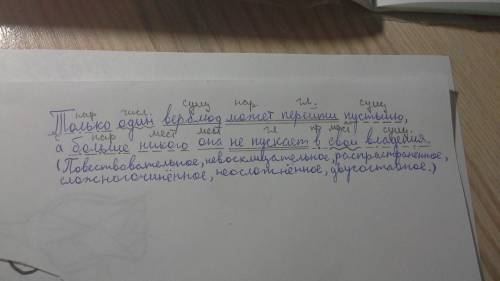 нар числ сущ нар гл. сущ
Только один верблюд может перейти пустыню,
с нар мест мест гл пр мест сущ.
а больше никого она не пускает в свои владения
(Повествовательное, невосклицательное, распространённое,
сложносочинённое, неосложнённое, двусоставное.)